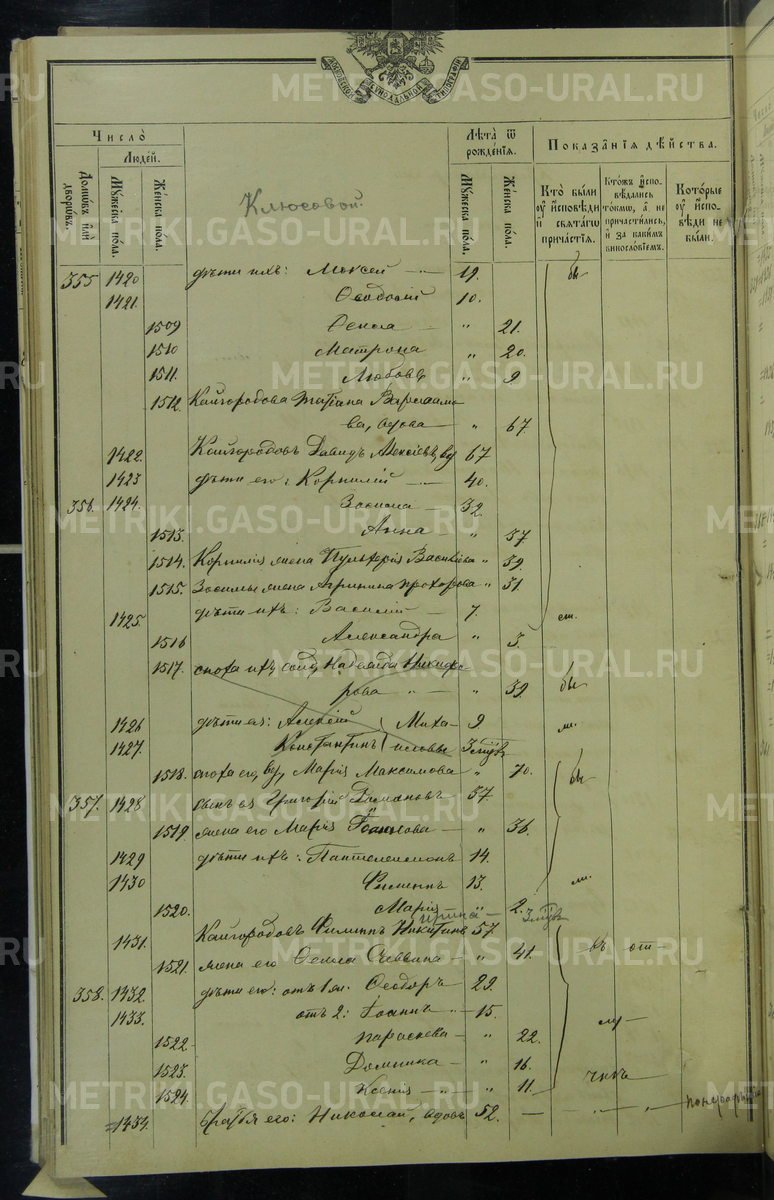 МОСКОВСКОЙ СѴНОДАЛЬНОЙ ТИПОГРАФІИ
METRIKI.GASO-URAL.RU
Число̀
Людей.
Домовъ или дворовъ.
Мужеска пола.
Женска пола.
Клюсовой
Лѣта ѿ рожденїя.
Мужеска пола.
Женска пола.
Показанїя дѣйства.
Кто были у исповѣди и святагѡ причастїя.
Ктожъ исповѣдались токмѡ, а не причастились, и за какимъ винословїемъ.
Которые у исповѣди не были.
355 1420 дѣти ихъ: Моксей — 19. бы
1421. Ѳеодосій 10.
1509 Ѳекла — " 21.
1510 Матрона " 20.
1511. Любовь " 9
1512. Кайгородова Татіана Варлаамо
ва, вдова — " 67.
1422. Кайгородовъ Давидъ Алексіевъ, вд 67
1423 дѣти его: Корнилій — 40.
356. 1424. Зосима — 32.
1513. Анна — " 37
1514. Корнилія жена Пульхерія Васильева " 39.
1515. Зосимы жена Агрипина Прохорова " 31.
1425. дѣти ихъ: Василій — 7. ст.
1516 Александра " 3.
1517. сноха ихъ, солд. Надежда Никифо
рова — " 39. бы
1426 дѣти ея: Алексій Миха- 9 мл.
1427. Константинъ иловы 3
1518. сноха его, вд, Марія Максимова " 70. бы
357. 1428 сынъ ея Григорій Домановъ 57.
1519. жена его Марія Іоаннова — " 36.
1429 дѣти ихъ: Пантелеимонъ 14.
1430 Филиппъ 13. мл.
1520. Марія " 2.
Ирина — 3
1431. Кайгородовъ Филиппъ Никитинъ 57. въ от-
1521. жена его Ѳекла Саввина — " 41.
358. 1432. дѣти его: отъ 1 ж. Ѳеодоръ 29.
1433. отъ 2: Іоаннъ " 15. лу-
1522. Параскева — " 22.
1523. Домника — " 16.
1524. Ксенія — " 11. чкѣ
1434. братья его: Николай, вдовъ 52. — " "